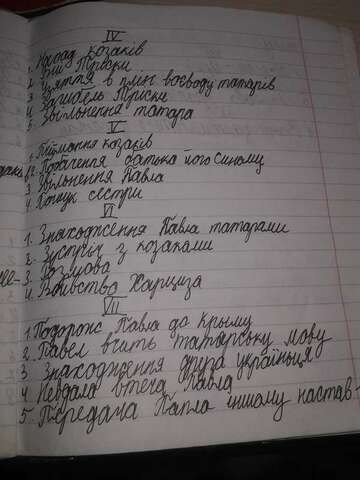 IV
1. Напад козаків
2. Дії Триски
3 Узяття в плен воєводу татарів
4 Загибель Триски
5. Звільнення татара
V
1. Піймання козаків
2. Пробачення батька його синому
3 Звільнення Павла
4 Пошук сестри
VI
1. Знаходження Павла татарами
2. Зустріч з козаками
3. Розмова
4. Вбивство Харциза
VII
1. Подорож Павла до Крыму
2. Павел вчить татарську мову
3 Знаходження друга українця
4 Невдала втеча Павла
5. Передача Павла іншому настав-